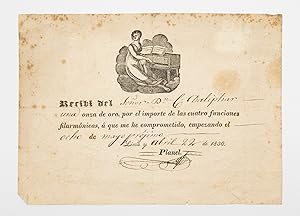 Recibí del Señor Dn. C. Baliphar
una onza de oro, por el importe de las cuatro funciones
filarmónicas, á que me he comprometido, empezando el
ocho de mayo próximo
y abril 22 de 1850.
Planel.